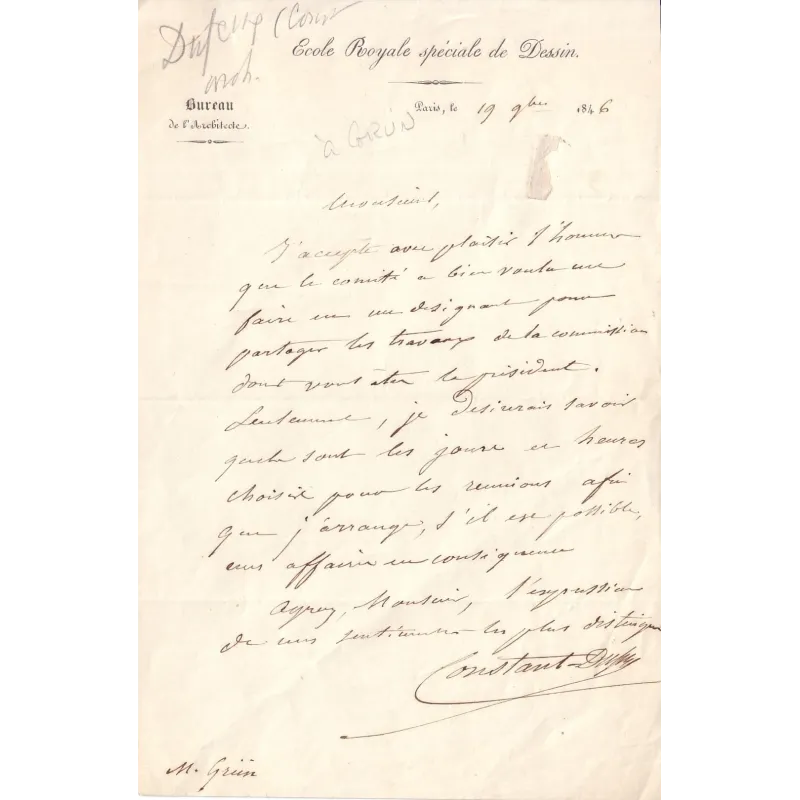 Dufeux (Const
arch.
Ecole Royale spéciale de Dessin.
Bureau
de l'Architecte.
Paris, le 19 9bre 1846
à GRÜN
Monsieur,
J'accepte avec plaisir l'honneur
que le comité a bien voulu me
faire en me designant pour
partager les travaux de la commission
dont vous êtes le président.
Seulement, je desirerais savoir
quels sont les jours et heures
choisis pour les reunions afin
que j'arrange, s'il est possible,
mes affaires en consequence
Agréez, Monsieur, l'expression
de mes sentiments les plus distingués
Constant-Dufeux
M. Grün